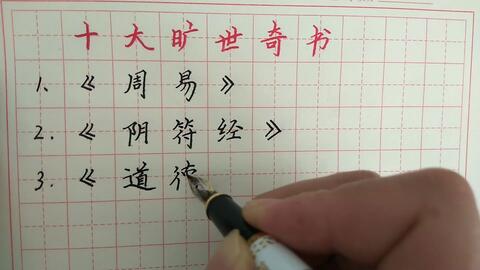 十大旷世奇书
1.《周易》
2.《阴符经》
3.《道